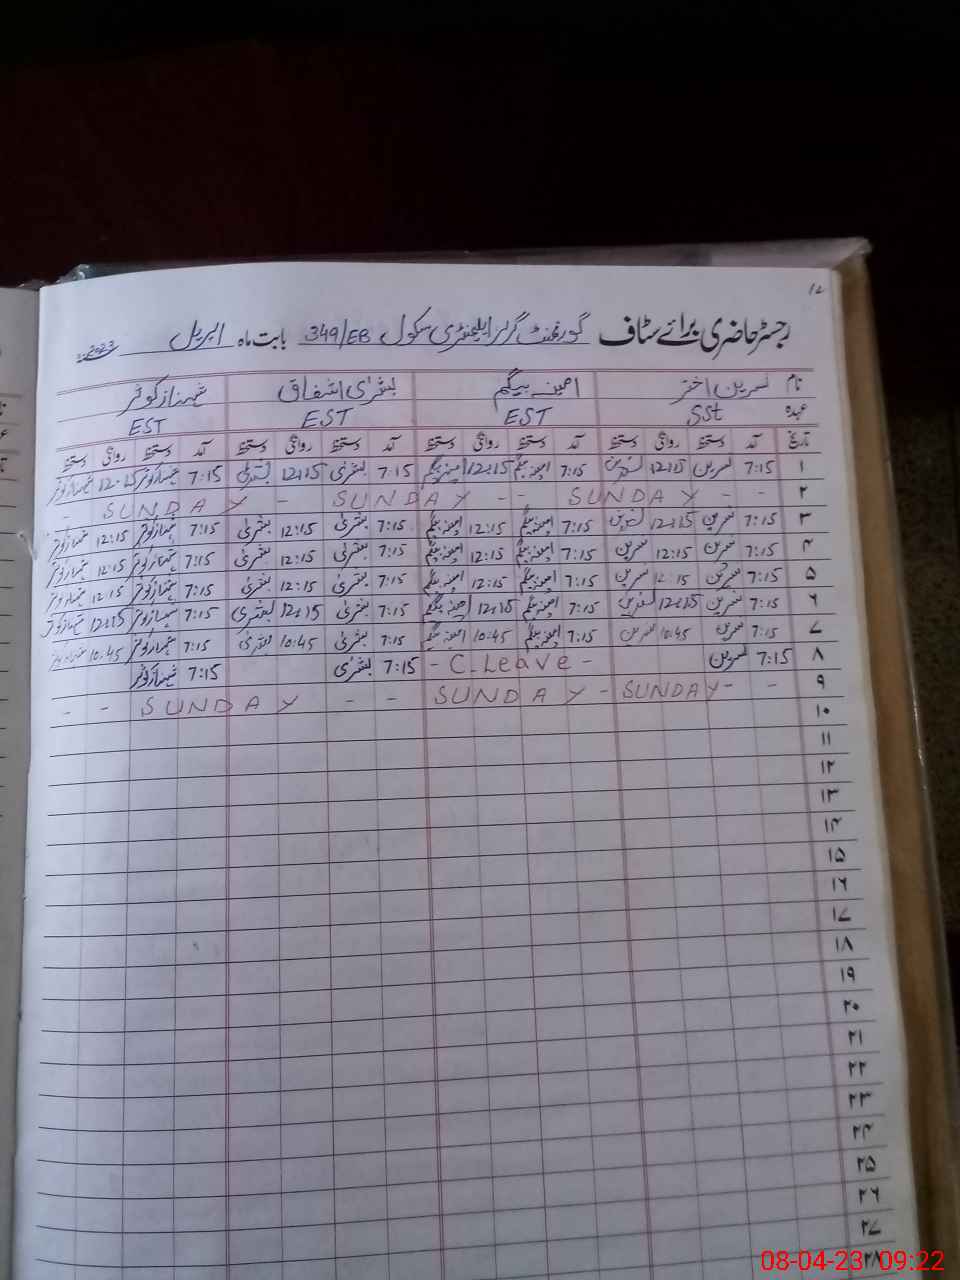 ۱۷
رجسٹر حاضری برائے سٹاف گورنمنٹ گرلز ایلیمنٹری سکول 349/EB بابت ماہ اپریل 2023
نام نسرین اختر امینہ بیگم بشریٰ اشفاق شہناز کوثر
عہدہ SSt EST EST EST
تاریخ آمد دستخط روانگی دستخط آمد دستخط روانگی دستخط آمد دستخط روانگی دستخط آمد دستخط روانگی دستخط
۱ 7:15 نسرین 12:15 نسرین 7:15 امینہ بیگم 12:15 امینہ بیگم 7:15 بشریٰ 12:15 بشریٰ 7:15 شہناز کوثر 12:15 شہناز کوثر
۲ - - SUNDAY - - SUNDAY - SUNDAY -
۳ 7:15 نسرین 12:15 نسرین 7:15 امینہ بیگم 12:15 امینہ بیگم 7:15 بشریٰ 12:15 بشریٰ 7:15 شہناز کوثر 12:15 شہناز کوثر
۴ 7:15 نسرین 12:15 نسرین 7:15 امینہ بیگم 12:15 امینہ بیگم 7:15 بشریٰ 12:15 بشریٰ 7:15 شہناز کوثر 12:15 شہناز کوثر
۵ 7:15 نسرین 12:15 نسرین 7:15 امینہ بیگم 12:15 امینہ بیگم 7:15 بشریٰ 12:15 بشریٰ 7:15 شہناز کوثر 12:15 شہناز کوثر
۶ 7:15 نسرین 12:15 نسرین 7:15 امینہ بیگم 12:15 امینہ بیگم 7:15 بشریٰ 12:15 بشریٰ 7:15 شہناز کوثر 12:15 شہناز کوثر
۷ 7:15 نسرین 10:45 نسرین 7:15 امینہ بیگم 10:45 امینہ بیگم 7:15 بشریٰ 10:45 بشریٰ 7:15 شہناز کوثر 10:45 شہناز کوثر
۸ 7:15 نسرین - C.Leave - 7:15 بشریٰ 7:15 شہناز کوثر
۹ - - SUNDAY - SUNDAY - - SUNDAY - -
۱۰
۱۱
۱۲
۱۳
۱۴
۱۵
۱۶
۱۷
۱۸
۱۹
۲۰
۲۱
۲۲
۲۳
۲۴
۲۵
۲۶
۲۷
۲۸
08-04-23 09:22